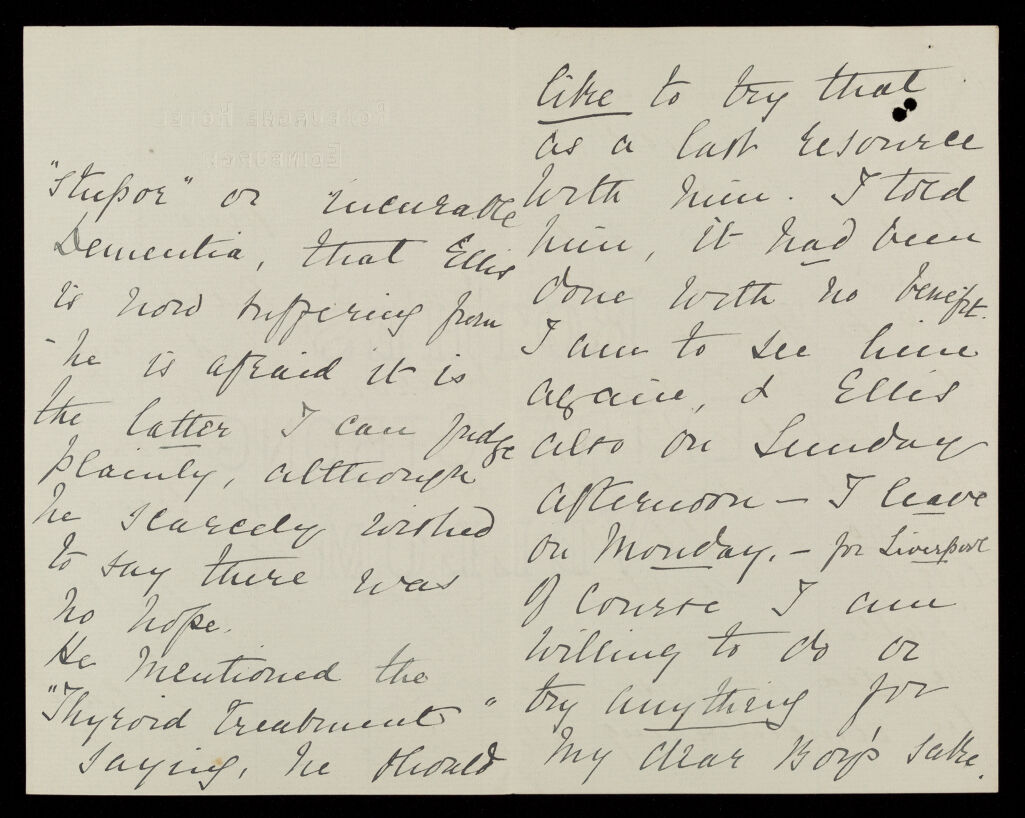 "Stupor" or incurable
Dementia, that Ellis
is now suffering from
- he is afraid it is
the latter I can judge
plainly, although
he scarcely wished
to say there was
no hope.
He mentioned the
"Thyroid Treatment"
saying, he should
like to try that
as a last resource
with him. I told
him, it had been
done with no benefit.
I am to see him
again, & Ellis
also on Sunday
afternoon – I leave
on Monday. – for Liverpool
Of course I am
willing to do or
try anything for
my dear Boy's sake.
ROXBURGHE HOTEL
EDINBURGH